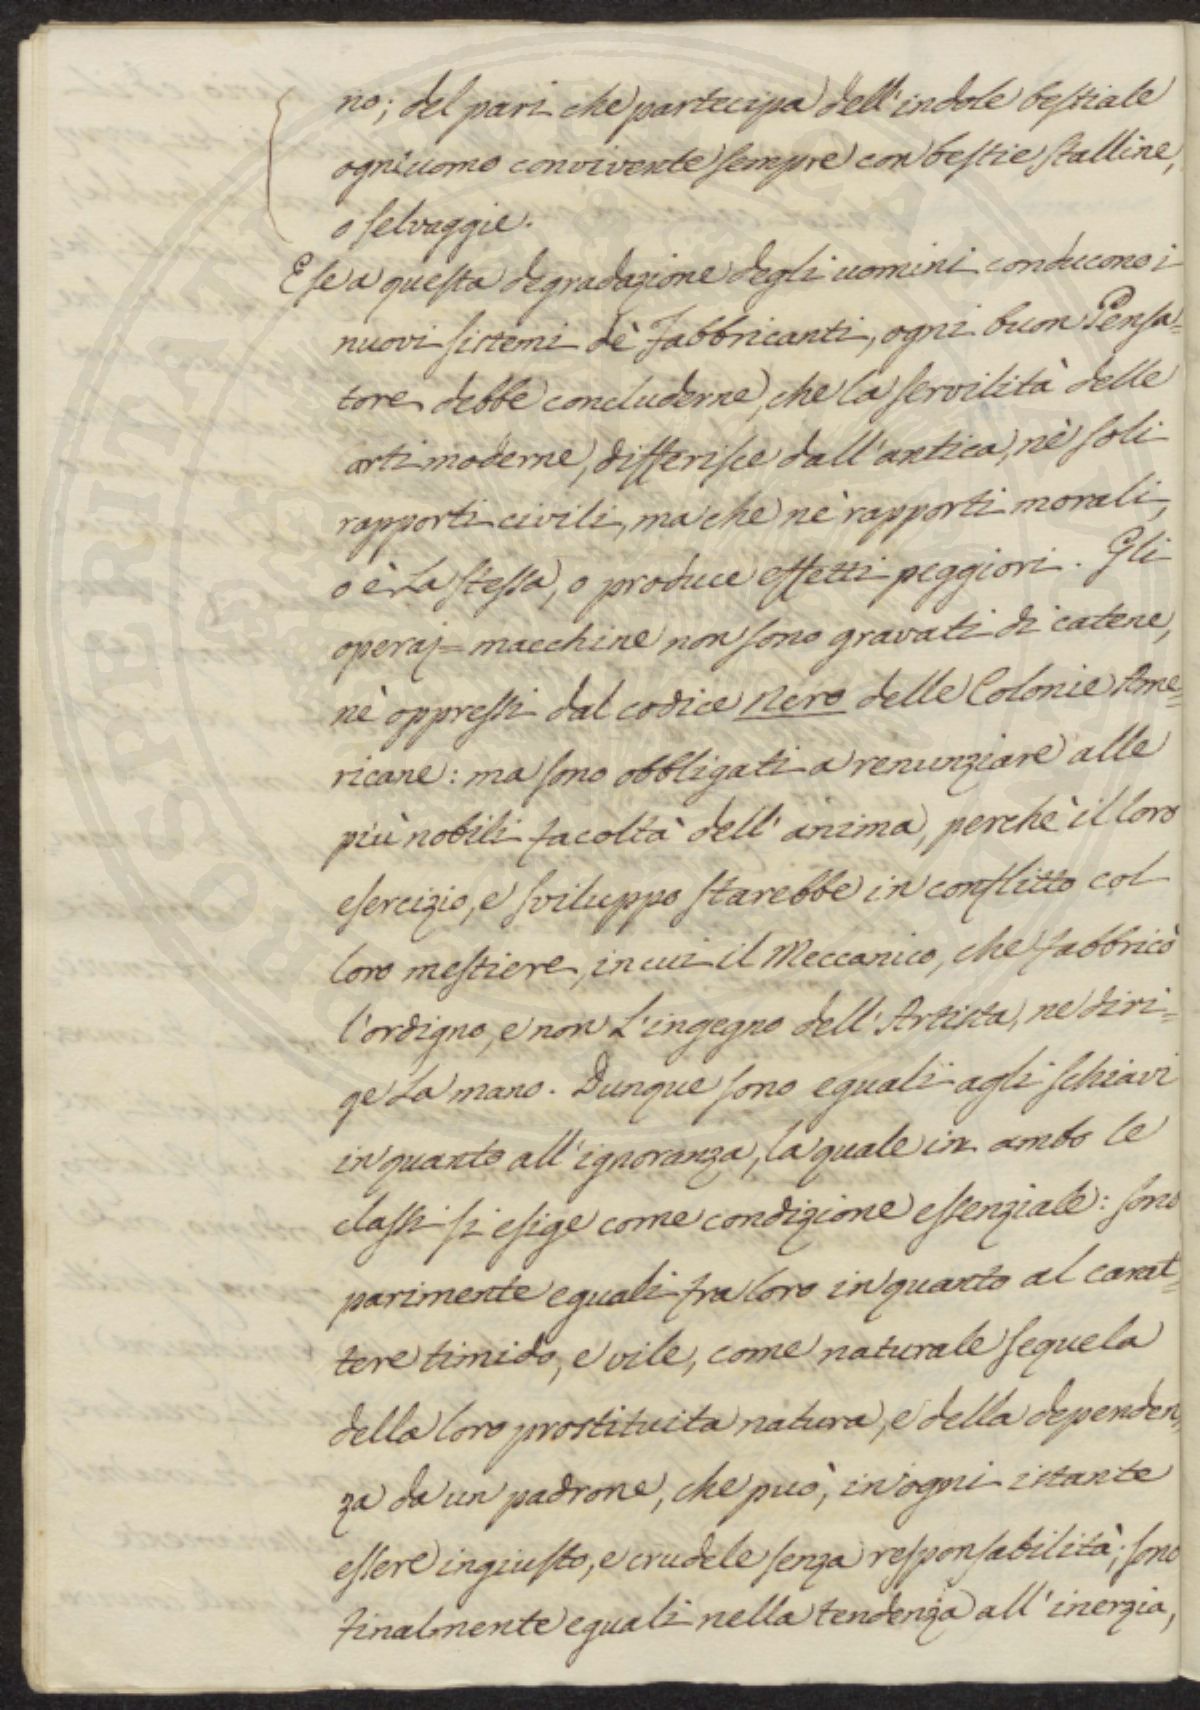 no; del pari che partecipa dell'indole bestiale
ogni uomo convivente sempre con bestie stalline,
o selvaggie.
E se a questa degradazione degli uomini conducono i
nuovi sistemi dè Fabbricanti, ogni buon Pensa=
tore debbe concluderne, che la servilità delle
arti moderne, differisce dall'antica, nè soli
rapporti civili, ma che nè rapporti morali,
o è La stessa, o produce effetti peggiori. Gli
operaj=macchine non sono gravati di catene,
nè oppressi dal codice Nero delle Colonie Ame=
ricane: ma sono obbligati a renunziare alle
più nobili facoltà dell'anima, perchè il loro
esercizio, e sviluppo starebbe in conflitto col
loro mestiere, in cui il Meccanico, che fabbricò
l'ordigno, e non L'ingegno dell'Artista, ne diri=
ge La mano. Dunque sono eguali agli schiavi
in quanto all'ignoranza, la quale in ambo le
classi si esige come condizione essenziale: sono
parimente eguali fra loro in quanto al carat=
tere timido, e vile, come naturale sequela
della loro prostituita natura, e della dependen,
za da un padrone, che può, in ogni istante
essere ingiusto, e crudele senza responsabilità; sono
finalmente eguali nella tendenza all'inerzia,